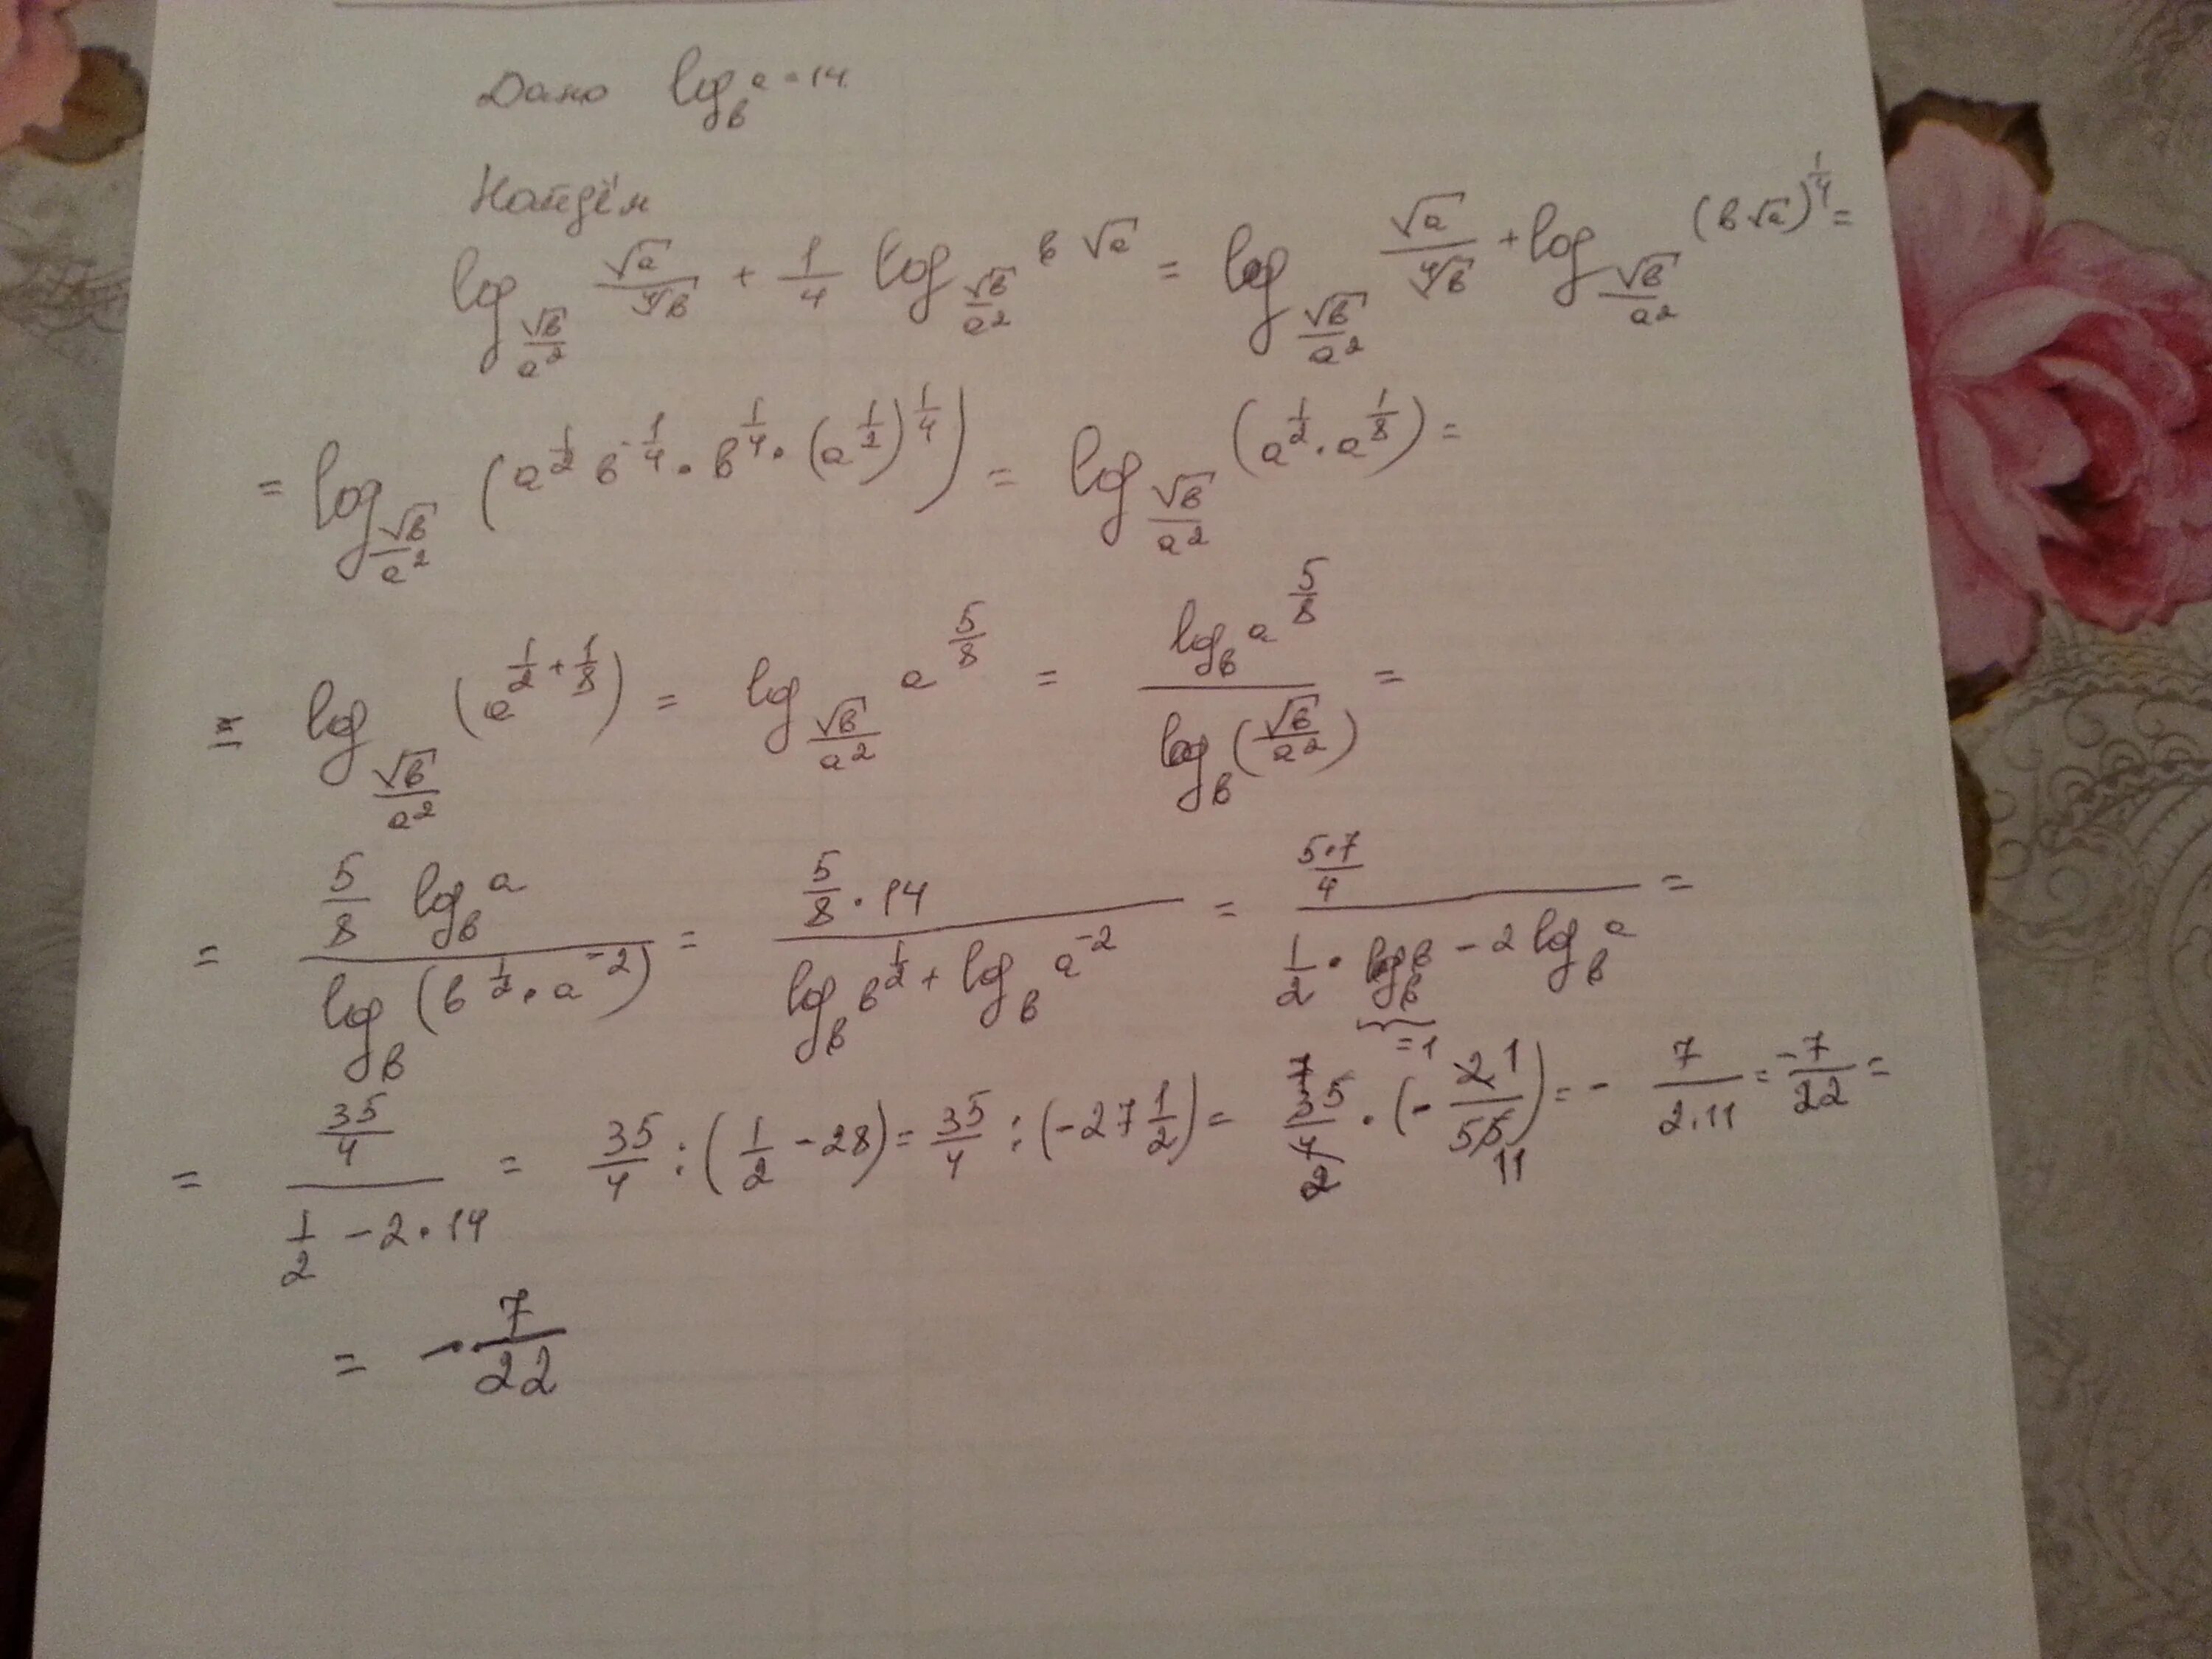 Дано log_в a = 14.
Найдём
log_{√в/a²} √a/⁴√в + 1/4 log_{√в/a²} в√a = log_{√в/a²} √a/⁴√в + log_{√в/a²} (в√a)^{1/4} =
= log_{√в/a²} (a^{1/2} в^{-1/4} · в^{1/4} · (a^{1/2})^{1/4}) = log_{√в/a²} (a^{1/2} · a^{1/8}) =
= log_{√в/a²} (a^{1/2 + 1/8}) = log_{√в/a²} a^{5/8} = (log_в a^{5/8}) / (log_в (√в/a²)) =
= (5/8 log_в a) / (log_в (в^{1/2} · a^{-2})) = (5/8 · 14) / (log_в в^{1/2} + log_в a^{-2}) = (5·7/4) / (1/2 · log_в в - 2 log_в a) =
= 1
= (35/4) / (1/2 - 2 · 14) = 35/4 : (1/2 - 28) = 35/4 : (-27 1/2) = 35/4 · (- 2/55) = - 7/(2·11) = -7/22 =
= - 7/22